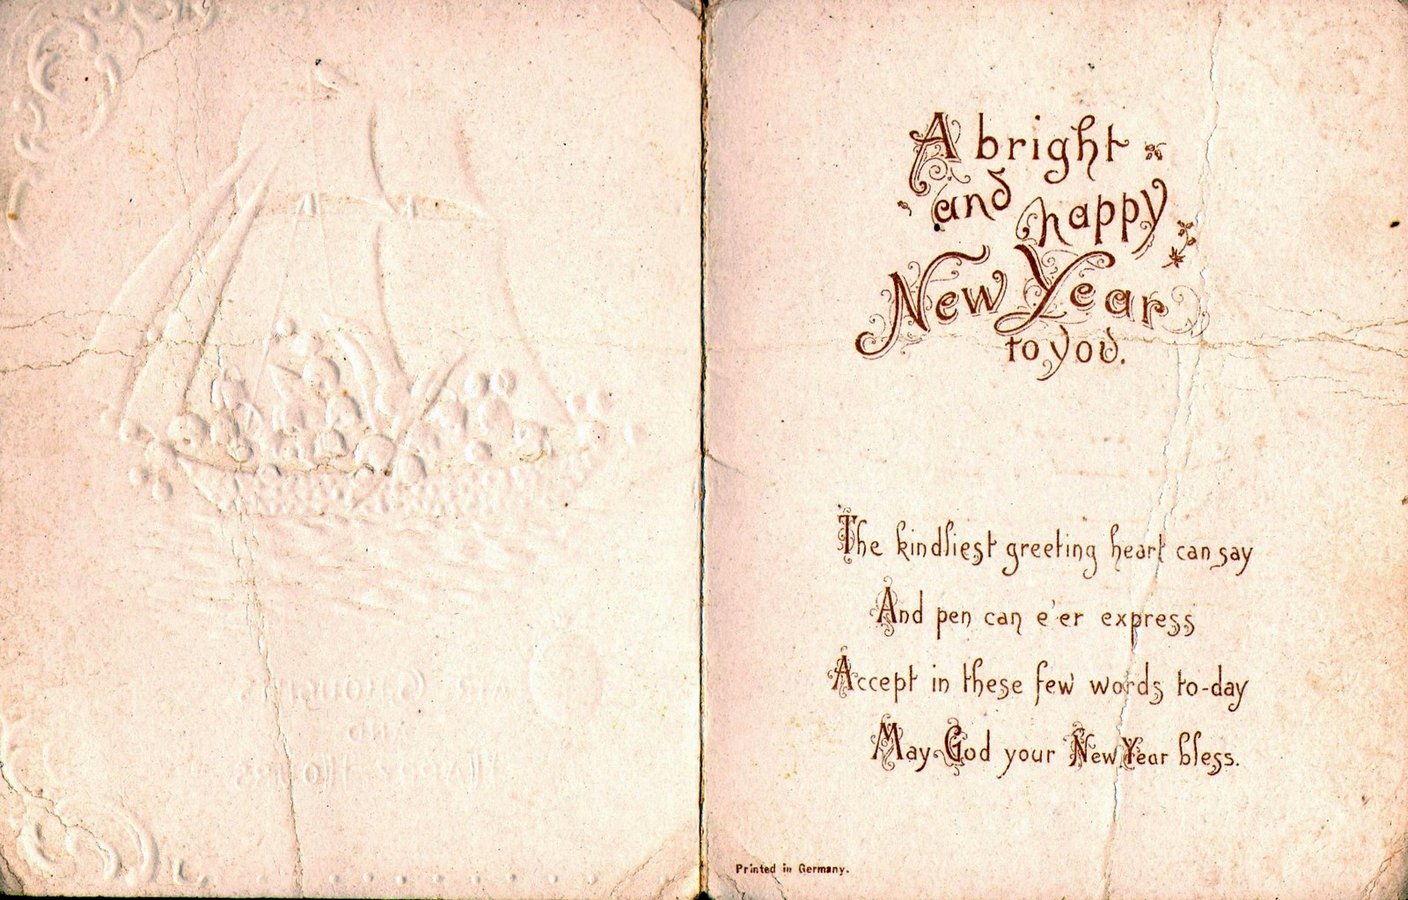 A bright
and happy
New Year
to you.
The kindliest greeting heart can say
And pen can e'er express
Accept in these few words to-day
May God your New Year bless.
Printed in Germany.